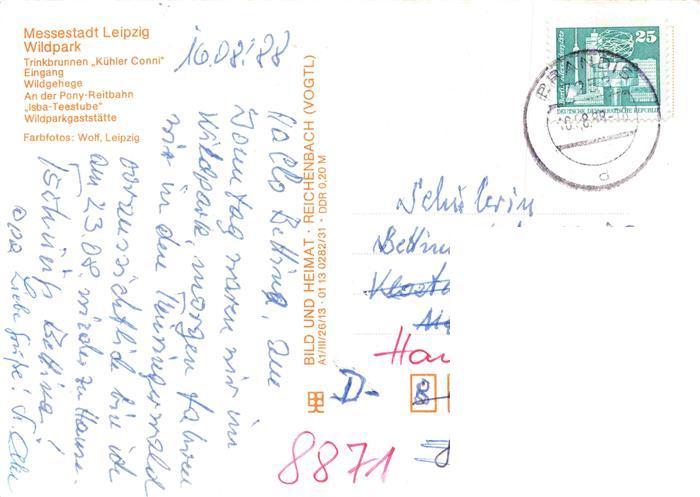 Messestadt Leipzig
Wildpark
Trinkbrunnen „Kühler Conni“
Eingang
Wildgehege
An der Pony-Reitbahn
„Isba-Teestube“
Wildparkgaststätte
Farbfotos: Wolf, Leipzig
16.08.'88
Hallo Bettina, am
Sonntag waren wir im
Wildpark, morgen fahren
wir in den Thüringerwald
voraussichtlich bin ich
am 23.08. wieder zu Hause.
Tschüß Bettina!
Liebe Grüße.
BILD UND HEIMAT · REICHENBACH (VOGTL)
A1/III/26/13 · 01 13 0282/31 · DDR 0,20 M
25
DEUTSCHE DEMOKRATISCHE REPUBLIK
BRANDIS
Schülerin
Bettin
Kloste
Ha
D-
8
8871